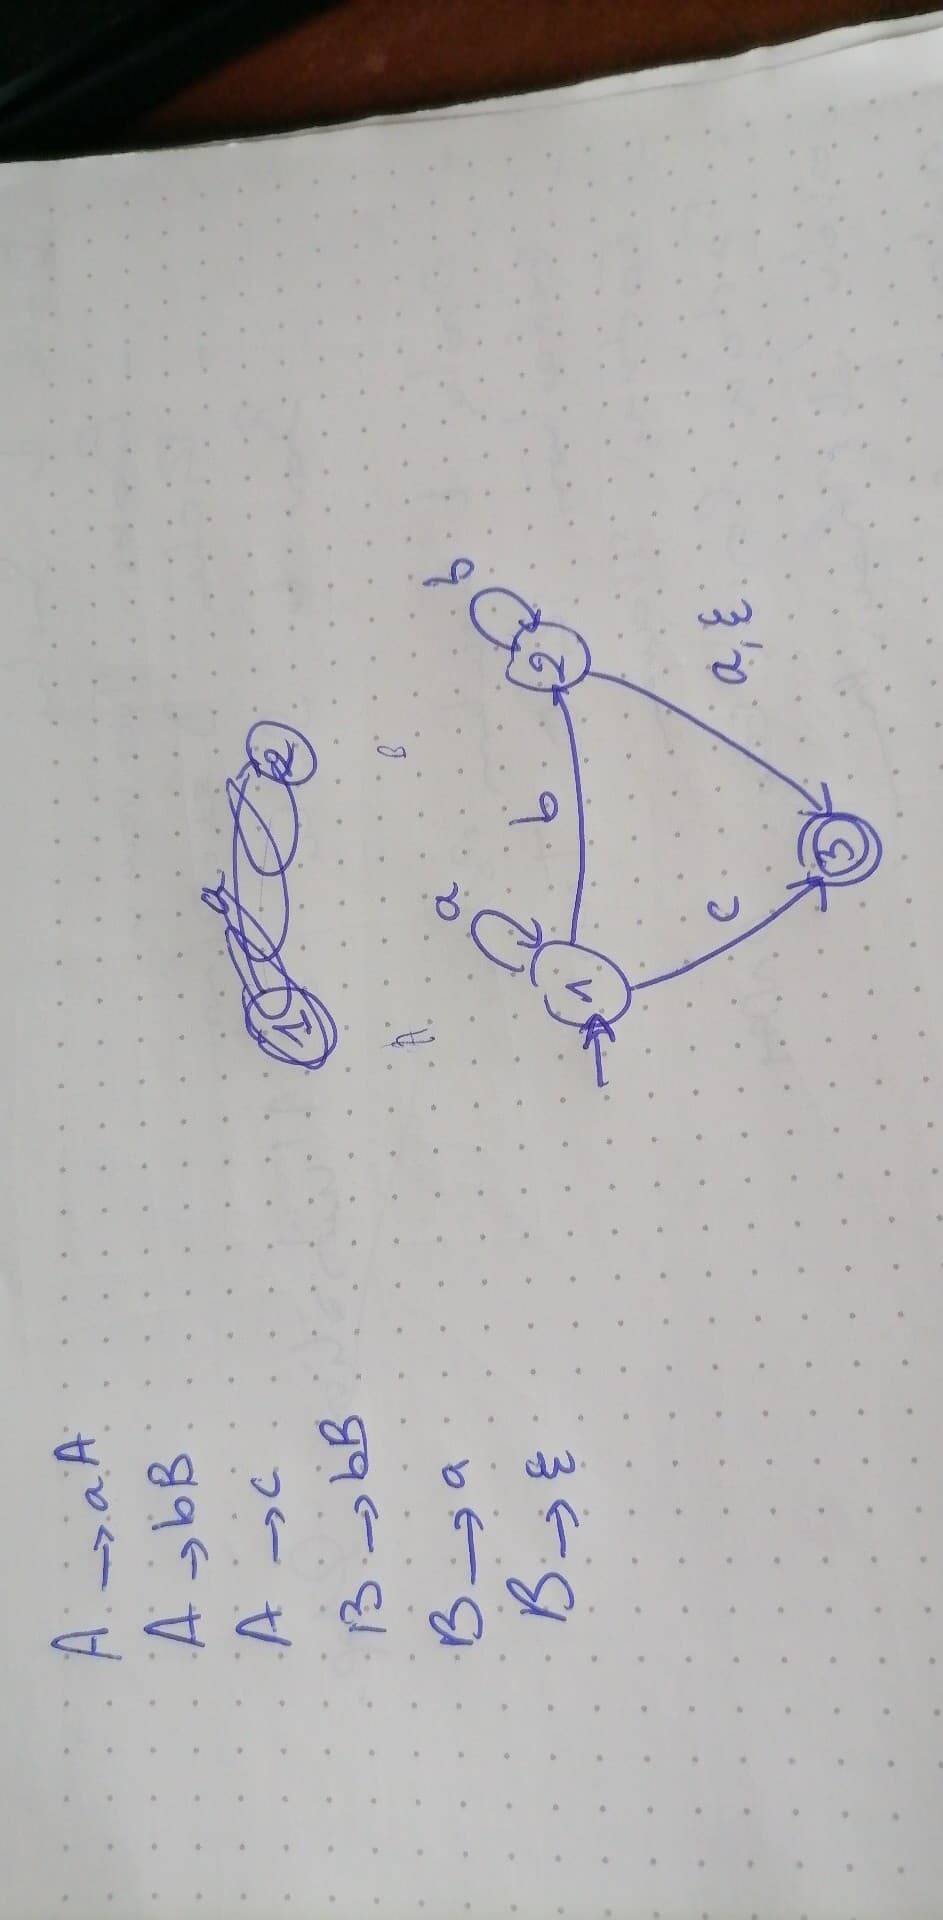 A → aA
A → bB
A → c
B → bB
B → a
B → ε
a
1 2
A B
a b
1 b 2
c a, ε
3